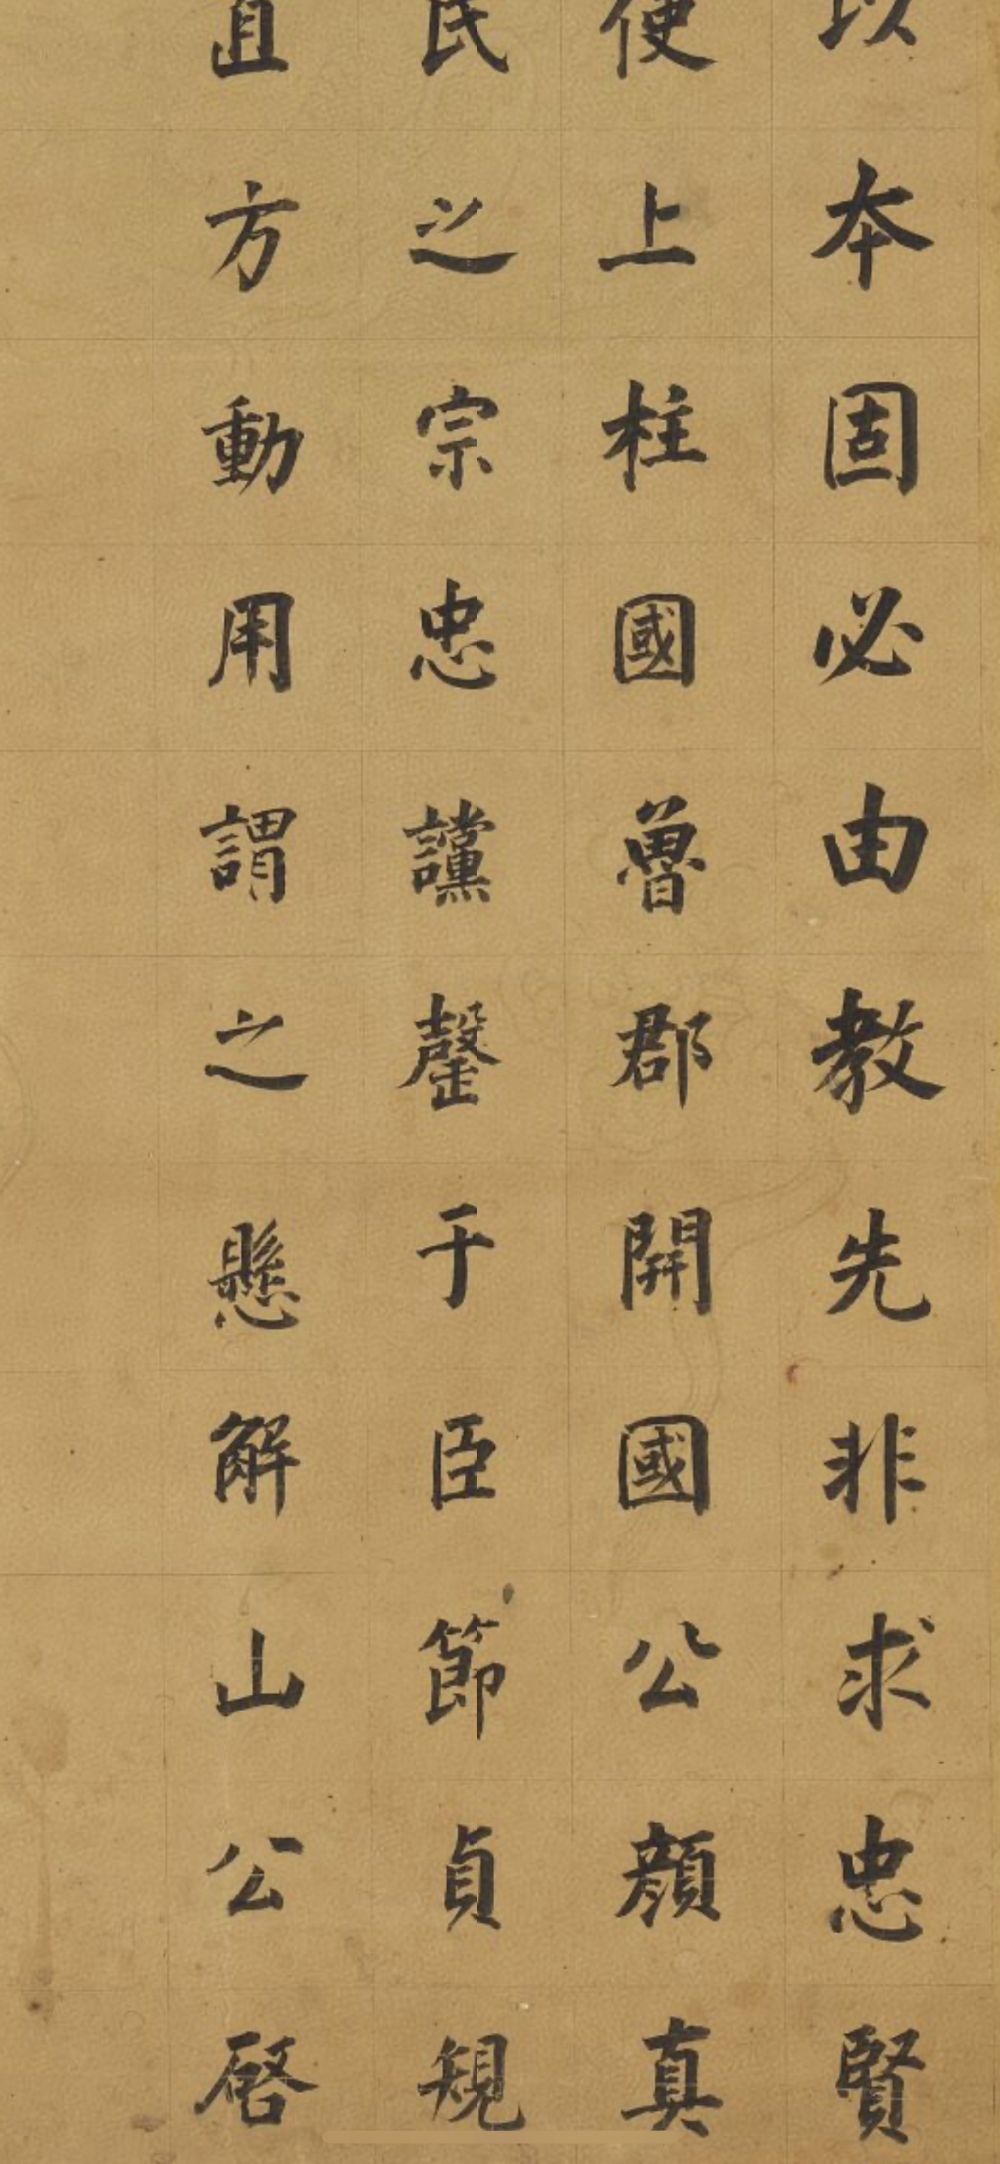 以本固必由教先非求忠賢
使上柱國魯郡開國公顏真
氏之宗忠讜罄于臣節貞規
直方動用謂之懸解山公啓